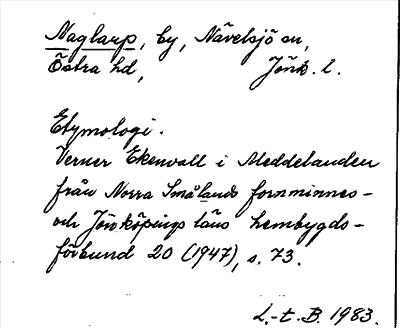 Naglarp, by, Nävelsjö sn,
Östra hd, Jönk. l.
Etymologi.
Verner Ekenvall i Meddelanden
från Norra Smålands fornminnes-
och Jönköpings läns hembygds-
förbund 20 (1947), s. 73.
L.-t. B. 1983.